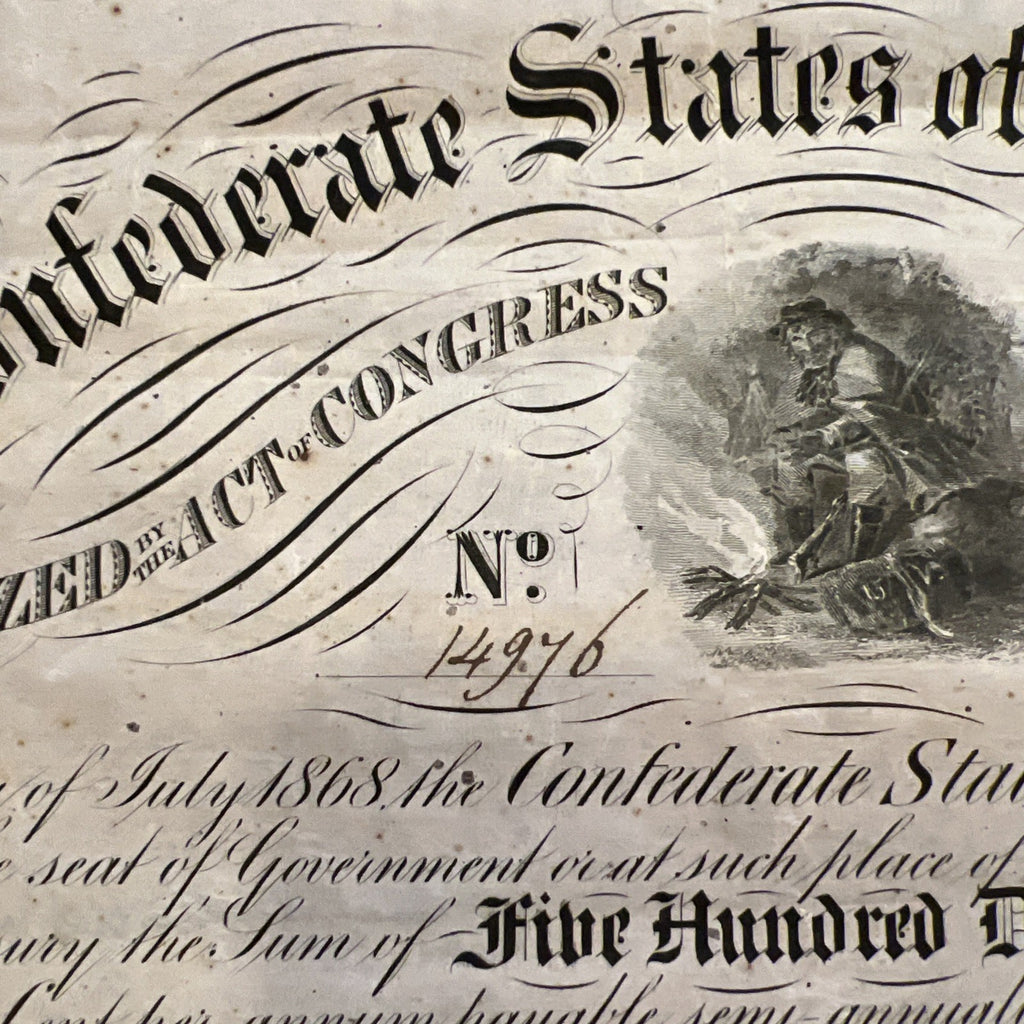 onfederate States of
ZED BY THE ACT OF CONGRESS
No.
14976
of July 1868, the Confederate Stat
e seat of Government or at such place of
sury the Sum of Five Hundred D
Cent per annum payable semi-annuall